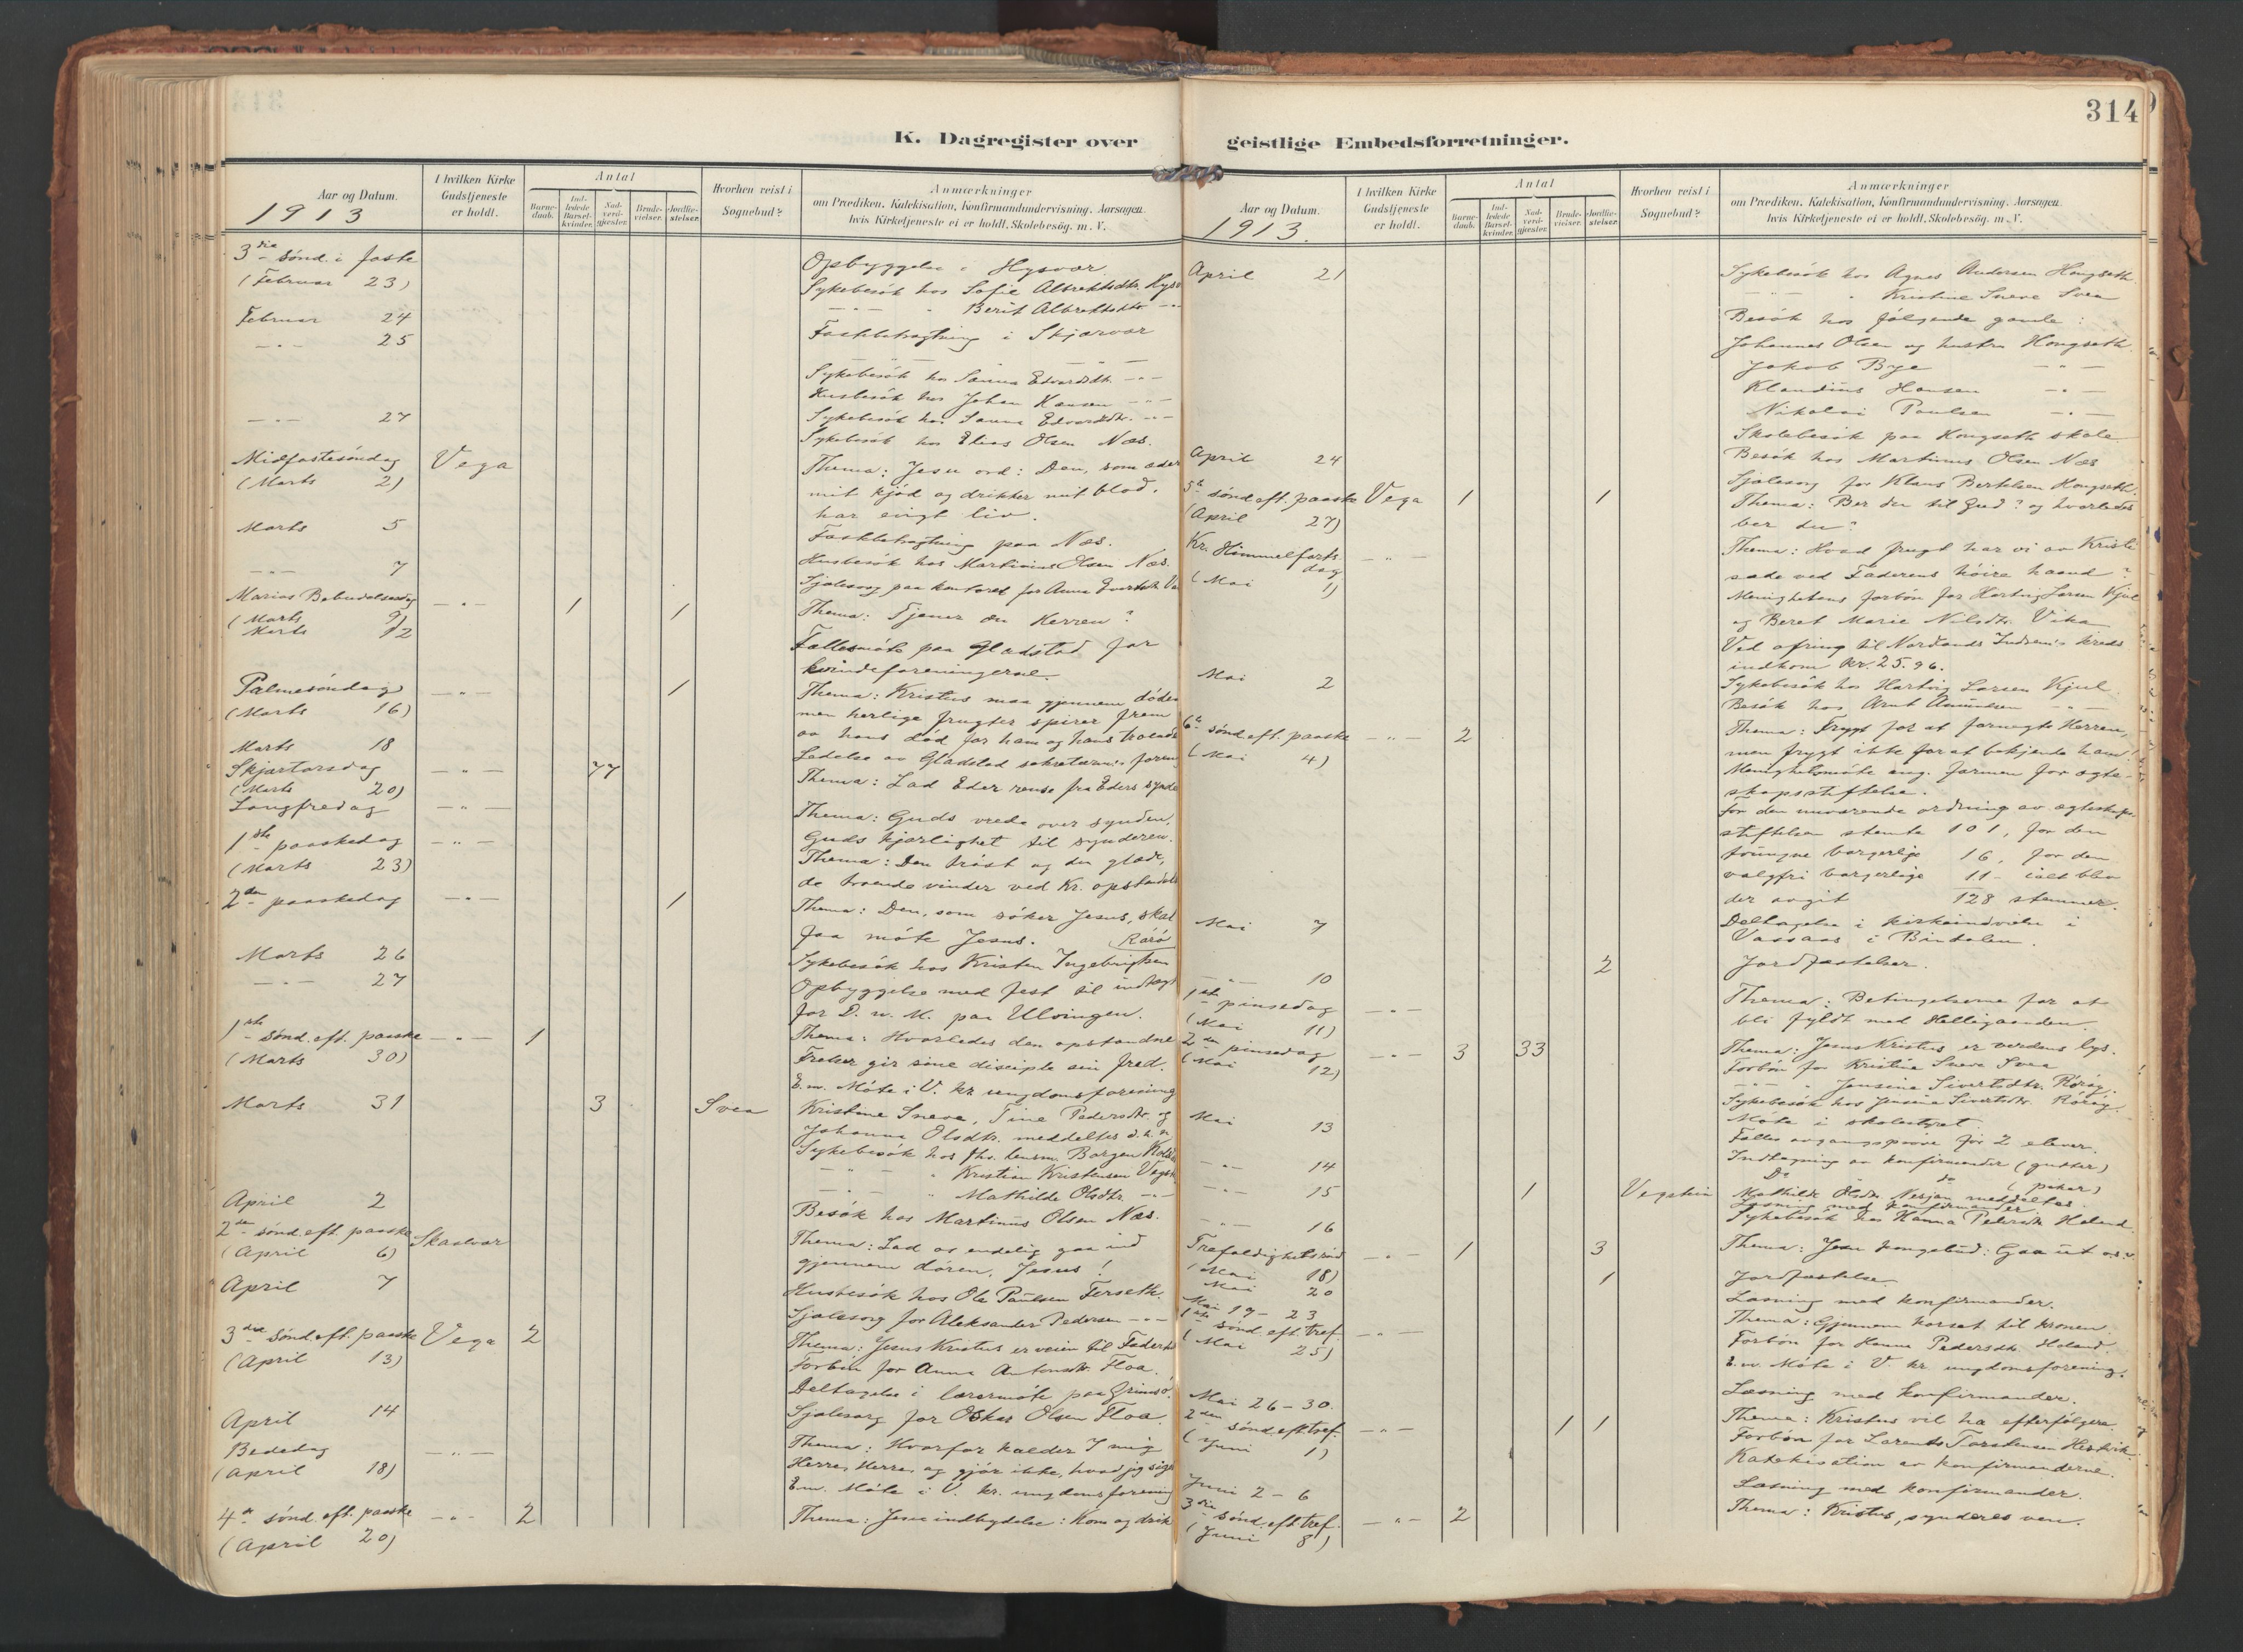 314
K. Dagregister over geistlige Embedsforretninger.
Aar og Datum.
1913
I hvilken Kirke Gudstjeneste er holdt.
Antal
Barnedaab.
Indledede Barselkvinder.
Nadverdgjester.
Brudevielser.
Jordfæstelser.
Hvorhen reist i Sognebud?
Anmærkninger
om Prædiken, Katekisation, Konfirmandundervisning, Aarsagen,
hvis Kirketjeneste ei er holdt, Skolebesøg, m. V.
3die sönd. i faste
(Februar 23) Opbyggelse i Hysvær.
Sykebesök hos Sofie Albrektsdtr. Hysv
Februar 24 —"— " Berit Albrektsdtr. —"—
—"— 25 Fastebetragtning i Skjærvær
— " — — " —
Sykebesök hos Sanna Edvardsdtr. —"—
Husbesök hos Johan Hansen —"—
—"— 27 Sykebesök hos Sanna Edvardsdtr. —"—
Sykebesök hos Elias Olsen Næs.
Midfastesöndag Vega Thema: Jesu ord: Den, som æder
(Marts 2) mit kjöd og drikker mit blod,
har evigt liv.
Marts 5 Fastebetragtning paa Næs.
—"— 7 Husbesök hos Martinius Olsen Næs.
Sjælesorg paa kontoret for Anna
Marias Bebudelsesdag —"— 1 1 Thema: Tjener du Herren?
(Marts 9)
Marts 12 Fællesmöte paa Gladstad for
kvindeforeningerne.
Palmesöndag —"— 1 Thema: Kristus maa gjennem döden
(Marts 16) men herlige frugter spirer frem
av hans död for ham og hans troende
Marts 18 Ledelse av Gladstad forening
Skjærtorsdag —"— 77 Thema: Lad Eder rense fra Eders synder
(Marts 20)
Langfredag —"— Thema: Guds vrede over synden,
Guds kjærlighet til synderen.
1ste paaskedag —"— Thema: Den tröst og den glæde,
(Marts 23) de troende vinder ved Kr. opstandelse
2den paaskedag —"— 1 Thema: Den, som söker Jesus, skal
faa möte Jesus. Rörö
Marts 26 Sykebesök hos Kristen Ingebrigtsen
—"— 27 Opbyggelse med fest til indtægt
for D. n. M. paa Ulvingen.
1ste sönd. eft. paaske —"— 1 Thema: Hvorledes den opstandne
(Marts 30) Frelser gir sine disciple sin fred.
E.m. Möte i V. kr. ungdomsforening
Marts 31 3 Svea Kristine Sneve, Tine Pedersdtr. og
Johanna Olsdtr. meddeltes d. h. n.
Sykebesök hos fhv. lensm. Borgen
—"— " Kristian Kristensen
—"— " Mathilde Olsdtr. —"—
April 2 Besök hos Martinus Olsen Næs.
2den sönd. eft. paaske Skaalvær Thema: Lad os endelig gaa ind
(April 6) gjennem dören, Jesus!
April 7 Husbesök hos Ole Paulsen Ferseth.
Sjælesorg for Aleksander Pedersen —"—
3die sönd. eft. paaske Vega 2 Thema: Jesus Kristus er veien til Faderen
(April 13) Forbön for Anna Antonsdtr. Floa.
Deltagelse i lærermöte paa Grimsö.
April 14 Sjælesorg for Oskar Olsen Floa.
Bededag —"— Thema: Hvorfor kalder I mig
(April 18) Herre, Herre, og gjör ikke, hvad jeg siger
E.m. Möte i V. kr. ungdomsforening
4de sönd. eft. paaske —"— 2 Thema: Jesu indbydelse: Kom og drik
(April 20)
Aar og Datum.
1913.
I hvilken Kirke Gudstjeneste er holdt.
Antal
Barnedaab.
Indledede Barselkvinder.
Nadverdgjester.
Brudevielser.
Jordfæstelser.
Hvorhen reist i Sognebud?
Anmærkninger
om Prædiken, Katekisation, Konfirmandundervisning, Aarsagen,
hvis Kirketjeneste ei er holdt, Skolebesög, m. V.
April 21 Sykebesök hos Agnes Andersen Hongseth.
—"— " Kristine Sneve Svea
Besök hos fölgende gamle:
Johannes Olsen og hustru Hongseth.
Jakob Bye —"—
Klaudius Hansen —"—
Nikolai Paulsen —"—
Skolebesök paa Hongseth skole
April 24 Besök hos Martinus Olsen Næs
Sjælesorg for Klaus Bertelsen Hongseth.
5te sönd. eft. paaske Vega 1 1 Thema: Ber du til Gud? og hvorledes
(April 27) ber du?
Kr. Himmelfartsdag —"— Thema: Hvad frugt har vi av Kristi
(Mai 1) sæde ved Faderens höire haand?
Menighetens forbön for Hartvig Larsen Kjul
og Beret Marie Nilsdtr. Vika
Ved ofring til Nordlands Indrem.'s kreds
indkom kr. 25.96.
Mai 2 Sykebesök hos Hartvig Larsen Kjul
Besök hos Arnt Amundsen —"—
6te sönd. eft. paaske —"— 2 Thema: Frygt for at fornegte Herren,
(Mai 4) men frygt ikke for at bekjende ham!
Menighetsmöte ang. formen for ægte-
skapsstiftelse.
For den nuværende ordning av ægteskaps-
stiftelsen stemte 101, for den
tvungne borgerlige 16, for den
valgfri borgerlige 11 - ialt blev
der avgit 128 stemmer.
Mai 7 Deltagelse i kirkeindvielse i
Vassaas i Bindalen.
—"— 10 2 Jordfæstelser.
1ste pinsedag —"— Thema: Betingelserne for at
(Mai 11) bli fyldt med Helligaanden.
2den pinsedag —"— 3 33 Thema: Jesus Kristus er verdens lys.
(Mai 12) Forbön for Kristine Sneve Svea
—"— " Jensine Sivertsdtr. Röröy.
Sykebesök hos Jensine Sivertsdtr. Röröy.
Mai 13 Möte i skolestyret.
Fælles avgangsprøve for 2 elever.
—"— 14 Indtagning av konfirmander (gutter)
Do do (piker)
—"— 15 1 Vegstein Mathilde Olsdtr. Nesjan meddeltes
Læsning med konfirmander
—"— 16 Sykebesök hos Hanna Pedersdtr. Holand.
Trefoldighetssönd. —"— 1 3 Thema: Jesu kongebud: Gaa ut o.s.v.
(Mai 18)
Mai 20 1 Jordfæstelse
Mai 19 - 23 Læsning med konfirmander.
1ste sönd. eft. tref. —"— Thema: Gjennem korset til kronen
(Mai 25) Forbön for Hanna Pedersdtr. Holand.
E.m. Möte i V. kr. ungdomsforening.
Mai 26 - 30. Læsning med konfirmander.
2den sönd. eft. tref. —"— 1 1 Thema: Kristus vil ha efterfölgere
(Juni 1) Forbön for Larents Torstensen
Katekisation av konfirmanderne.
Juni 2 - 6 Læsning med konfirmander.
3die sönd. eft. tref. —"— 2 Thema: Kristus, synderes ven.
(Juni 8)